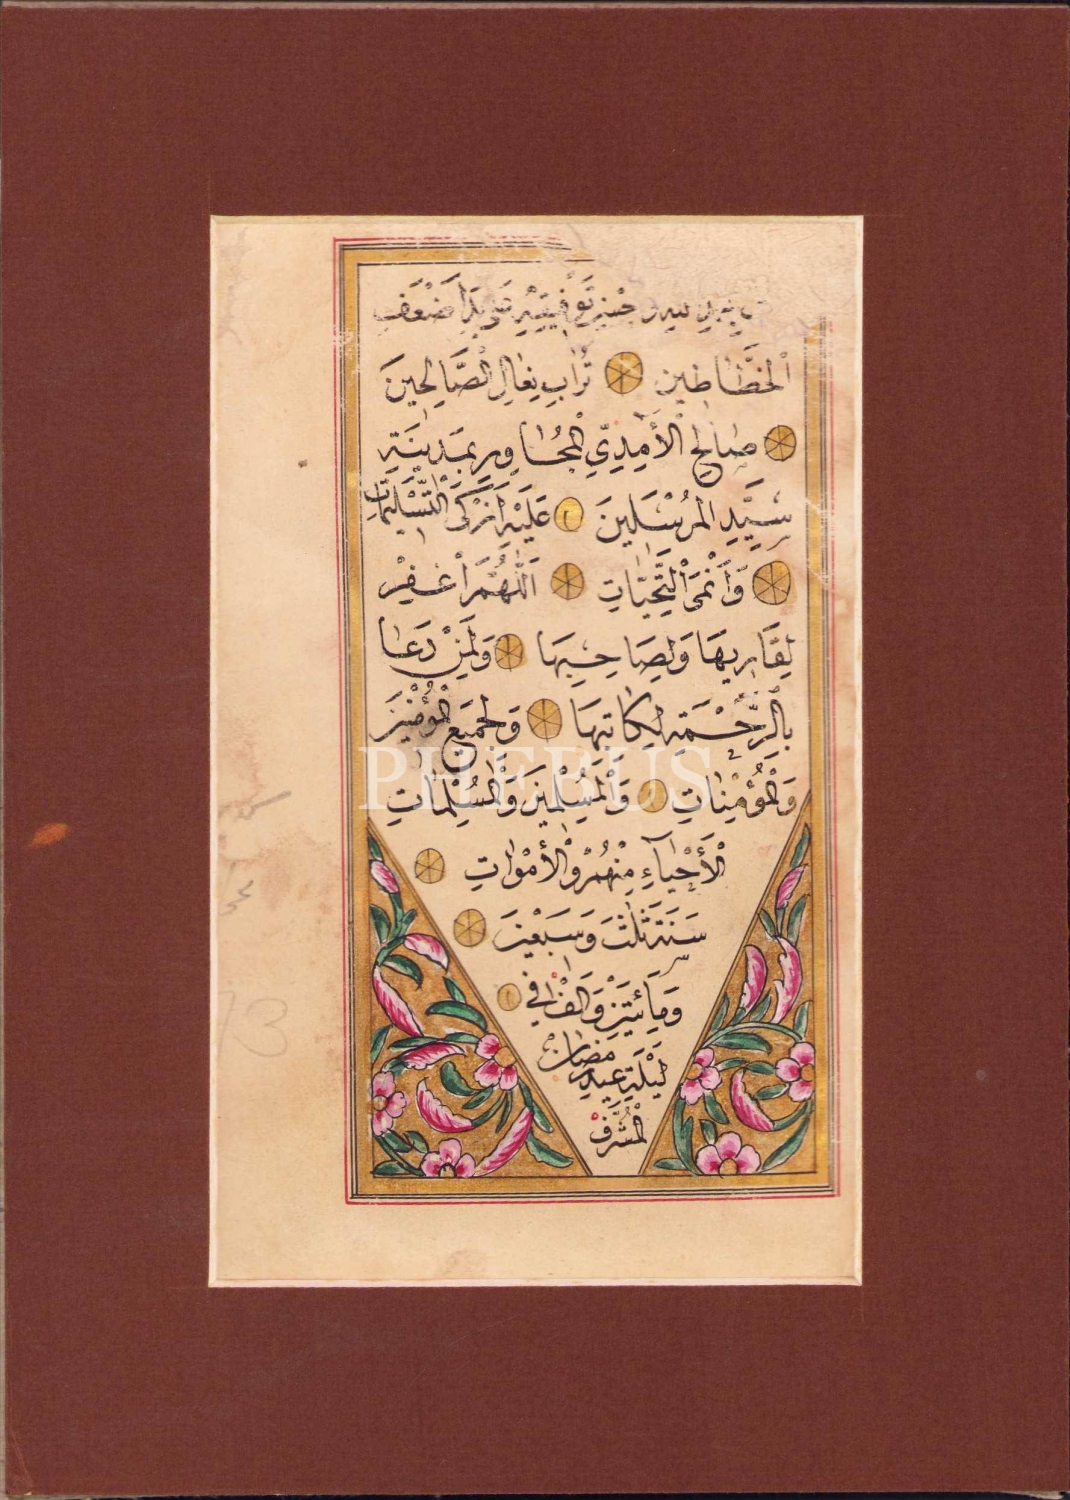 توفيقه على يد اضعف
الخطاطين تراب نعال الصالحين
صالح الأمدي المجاور بمدينة
سيد المرسلين عليه ازكى التسليمات
وانمى التحيات اللهم اغفر
لقاريها ولصاحبها ولمن دعا
بالرحمة لكاتبها ولجميع المؤمنين
والمؤمنات والمسلمين والمسلمات
الأحياء منهم والأموات
سنة ثلث وسبعين
ومأئتين والف في
ليلة عيد رمضان
المشرف
PHEBUS
13